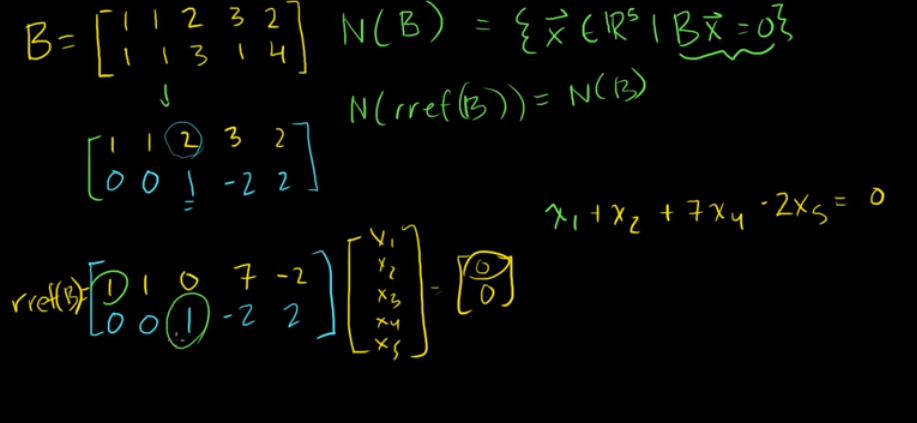 B = [ 1 1 2 3 2 ; 1 1 3 1 4 ] N(B) = { x⃗ ∈ ℝ⁵ | Bx⃗ = 0 }
N(rref(B)) = N(B)
[ 1 1 2 3 2 ; 0 0 1 -2 2 ]
x₁ + x₂ + 7x₄ - 2x₅ = 0
rref(B) = [ 1 1 0 7 -2 ; 0 0 1 -2 2 ] [ x₁ ; x₂ ; x₃ ; x₄ ; x₅ ] = [ 0 ; 0 ]